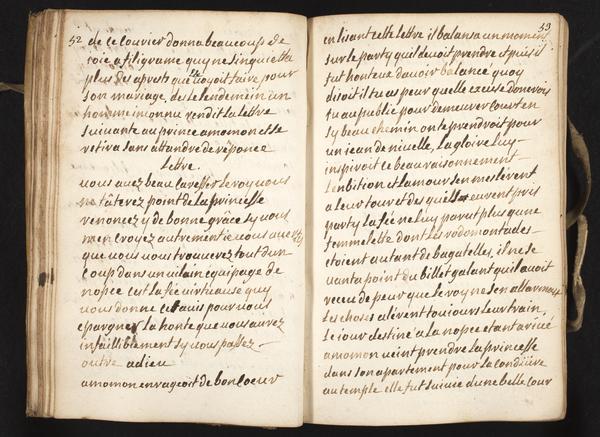 52
de ce Couvier donna beaucoup de
joie a filigrame quy ne s inquieta
plus des aprests quelle voyoit faire pour
son mariage, des le lendemein un
homme inconnu rendit la lettre
suivante au prince amomon et se
retira sans attandre de réponce
Lettre.
vous avez beau Caresser Le roy vous
ne tâterez point de la princesse
renoncez y de bonne grâce sy vous
m en croyez autrement je vous
que vous vous trouverez tout d un
coup dans un vilain equipage de
nopce C est la fée virtueuse quy
vous donne Cet avis pour vous
epargner la honte que vous aurez
infailliblement sy vous passez
outre adieu
amomon enrageoit de bon Coeur
53
en lisant cette lettre il balansa un moment
sur le party qu il devoit prendre et puis il
fut honteux d avoir balancé quoy
disoit il tu as peur quelle excuse donnerois
tu au public pour demeurer Court en
sy beau chemin on te prendroit pour
un jean de nivelle, La gloire luy
inspiroit ce beau raisonnement
L enbition et l amour s en meslèrent
a leur tour et des qu ils eurent pris
party la fée ne luy parut plus qu une
femmelette dont les rodomontades
etoient autant de bagatelles, il ne se
vanta point du billet galant quil avoit
receu de peur que le roy ne s en allarmase
Les choses alèrent toujours leur train,
Le jour destiné a la nopce etant arivé
amomon veint prendre la princesse
dans son apartement pour la conduire
au temple elle fut suivie d une belle Cour